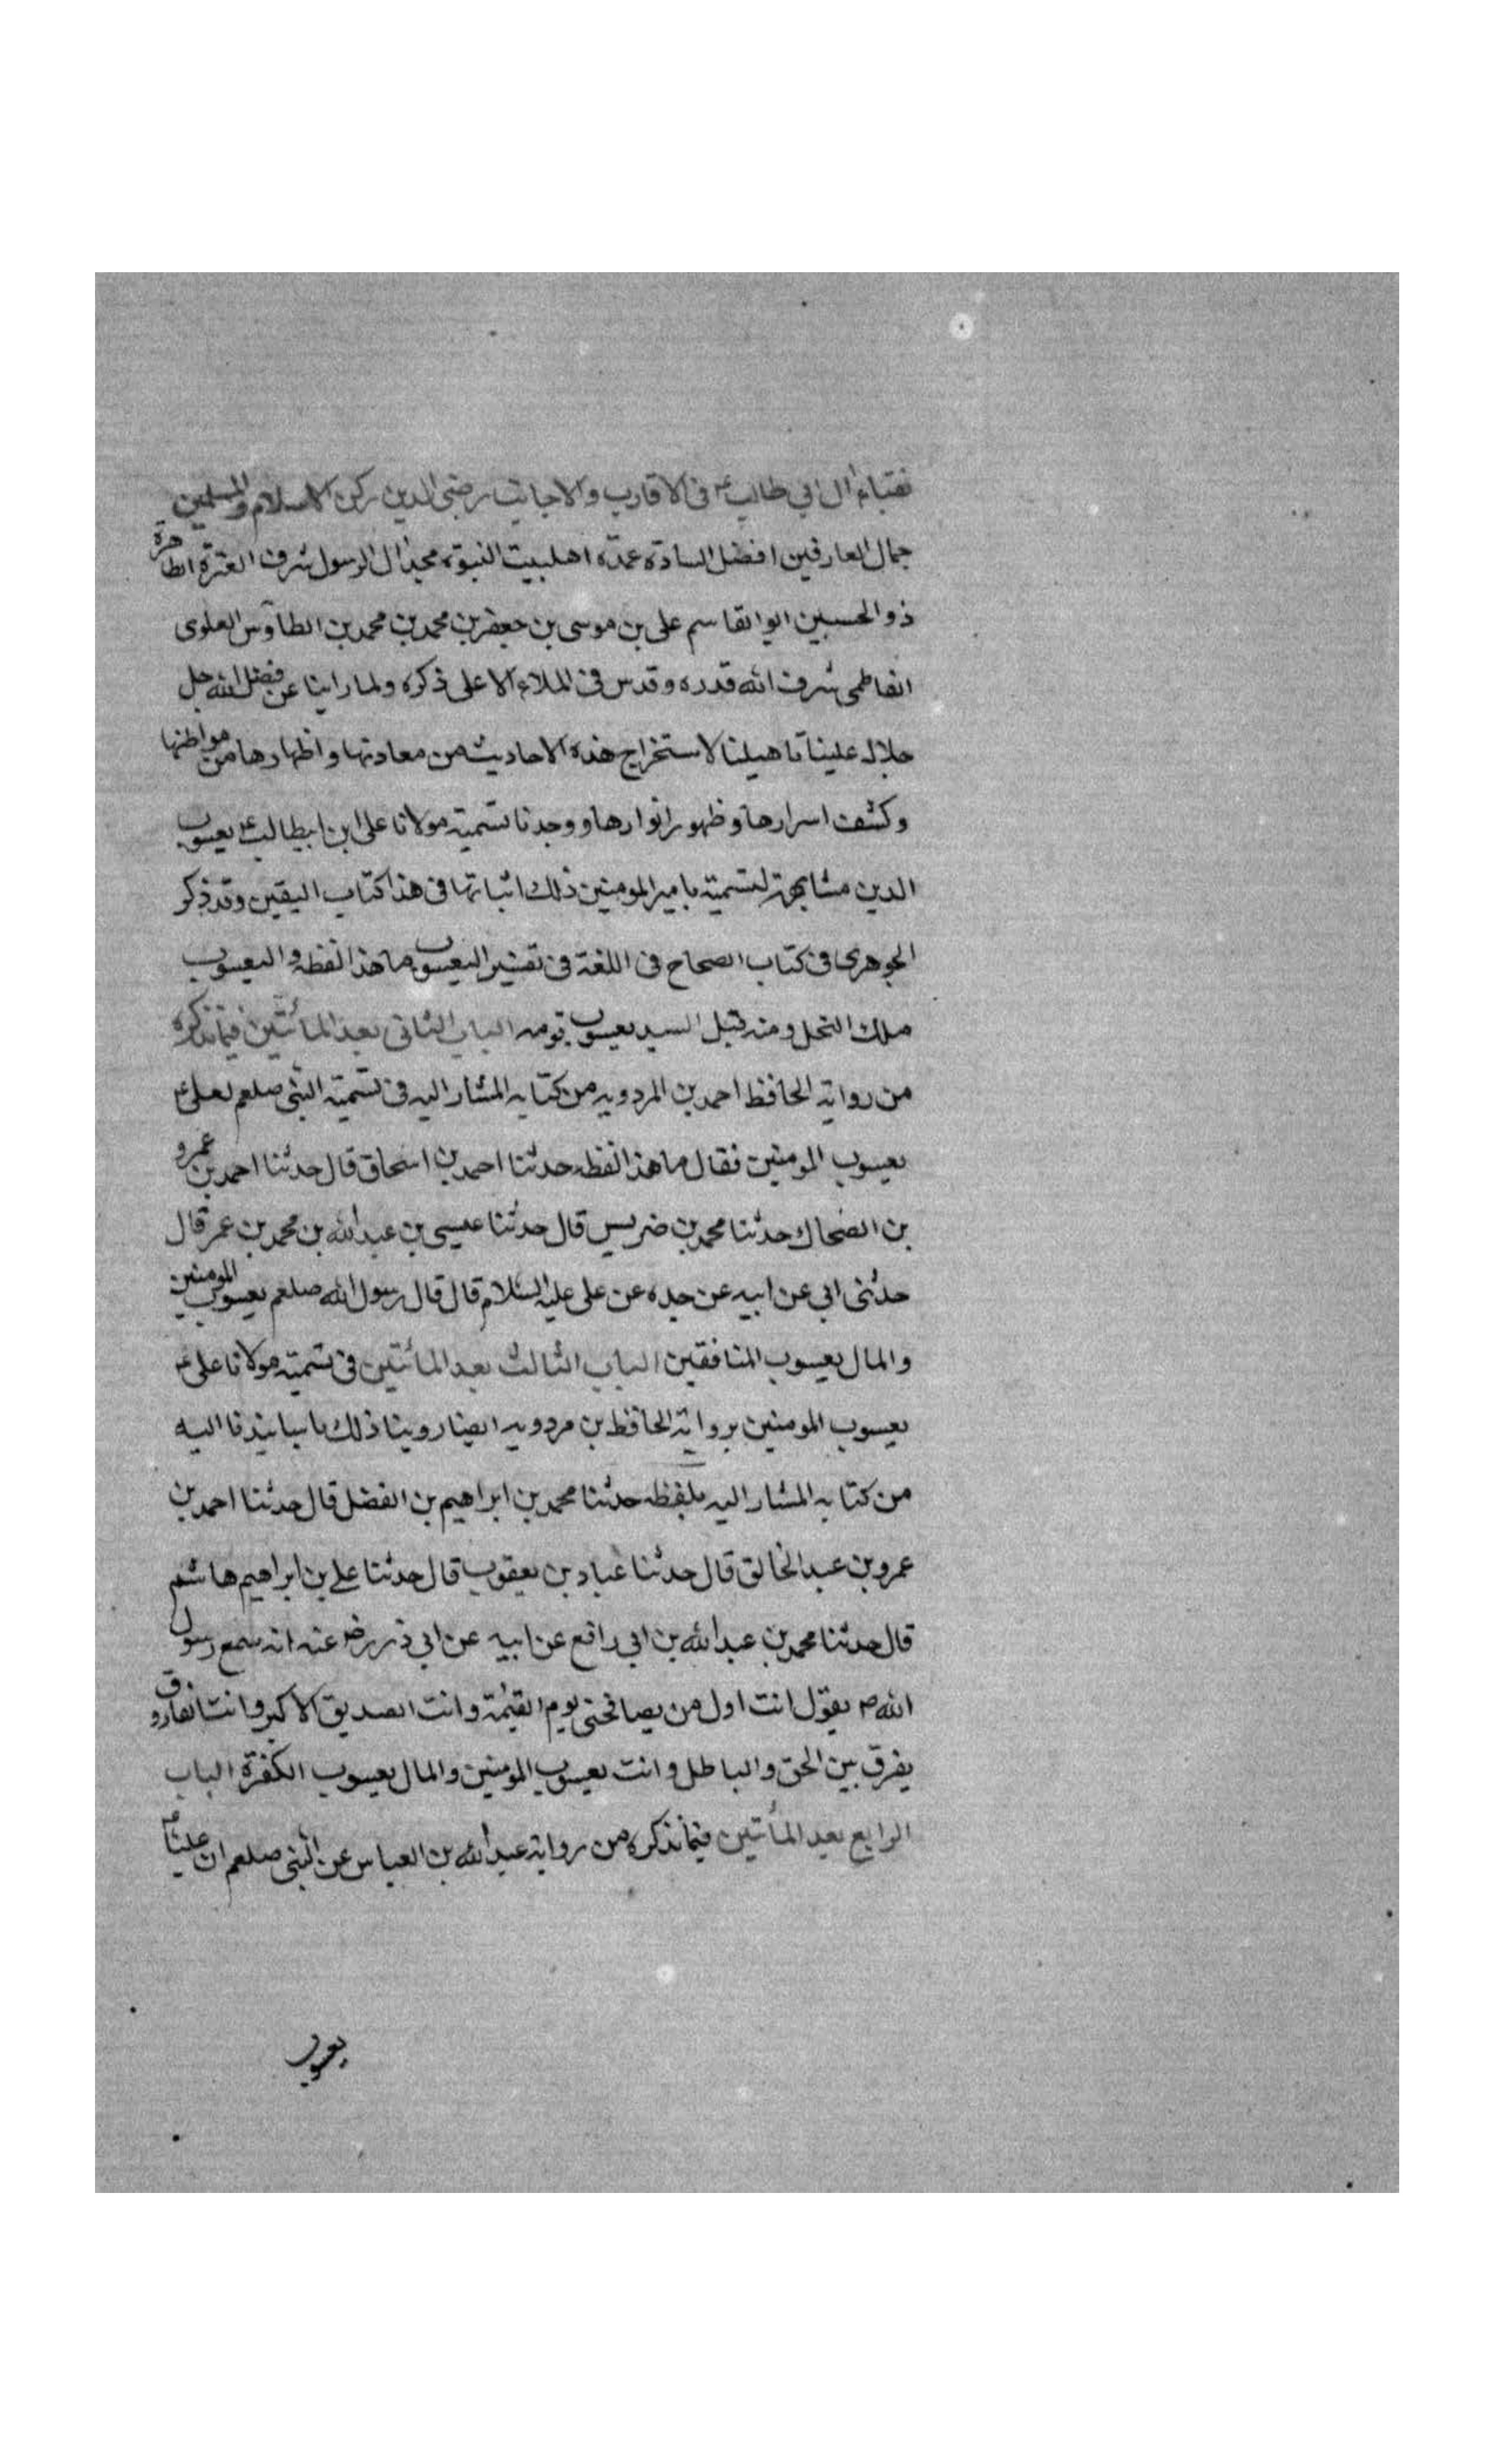 نقباء ال ابي طالب ع في الاقارب والاجانب رضي الدين ركن الاسلام والمسلمين
جمال العارفين افضل السادة عمدة اهلبيت النبوة مجد ال الرسول شرف العترة الطاهرة
ذو الحسبين ابو القاسم على بن موسى بن جعفر بن محمد بن محمد بن الطاوس العلوى
الفاطمى شرف الله قدره وقدس فى الملاء الاعلى ذكره ولما راينا عن فضل الله جل
جلاله علينا تاهيلنا لاستخراج هذه الاحاديث من معادنها واظهارها من مواطنها
وكشف اسرارها وظهور انوارها ووجدنا تسمية مولانا على ابن ابيطالب ع يعسوب
الدين مشابهة لتسميته بامير المومنين ذلك اثباتها فى هذا كتاب اليقين وقد ذكر
الجوهرى فى كتاب الصحاح فى اللغة فى تفسير اليعسوب ما هذا لفظه واليعسوب
ملك النحل ومنه قيل السيد يعسوب قومه الباب الثانى بعد المأتين فيما نذكره
من رواية الحافظ احمد بن المردويه من كتابه المشار اليه فى تسمية النبى صلعم لعلى ع
يعسوب المومنين فقال ما هذا لفظه حدثنا احمد بن اسحاق قال حدثنا احمد بن عمرو
بن الضحاك حدثنا محمد بن ضريس قال حدثنا عيسى بن عبد الله بن محمد بن عمر قال
حدثنى ابى عن ابيه عن جده عن على عليه السلام قال قال رسول الله صلعم يعسوب المومنين
والمال يعسوب المنافقين الباب الثالث بعد المأتين فى تسمية مولانا على ع
يعسوب المومنين برواية الحافظ بن مردويه ايضا روينا ذلك باسانيدنا اليه
من كتابه المشار اليه بلفظه حدثنا محمد بن ابراهيم بن الفضل قال حدثنا احمد بن
عمرو بن عبد الخالق قال حدثنا عباد بن يعقوب قال حدثنا على بن ابراهيم هاشم
قال حدثنا محمد بن عبد الله بن ابى رافع عن ابيه عن ابى ذر رض عنه انه سمع رسول
الله ص يقول انت اول من يصافحنى يوم القيمة وانت الصديق الاكبر وانت الفاروق
يفرق بين الحق والباطل وانت يعسوب المومنين والمال يعسوب الكفرة الباب
الرابع بعد المأتين فيما نذكره من رواية عبد الله بن العباس عن النبى صلعم ان عليا ع
يعسوب